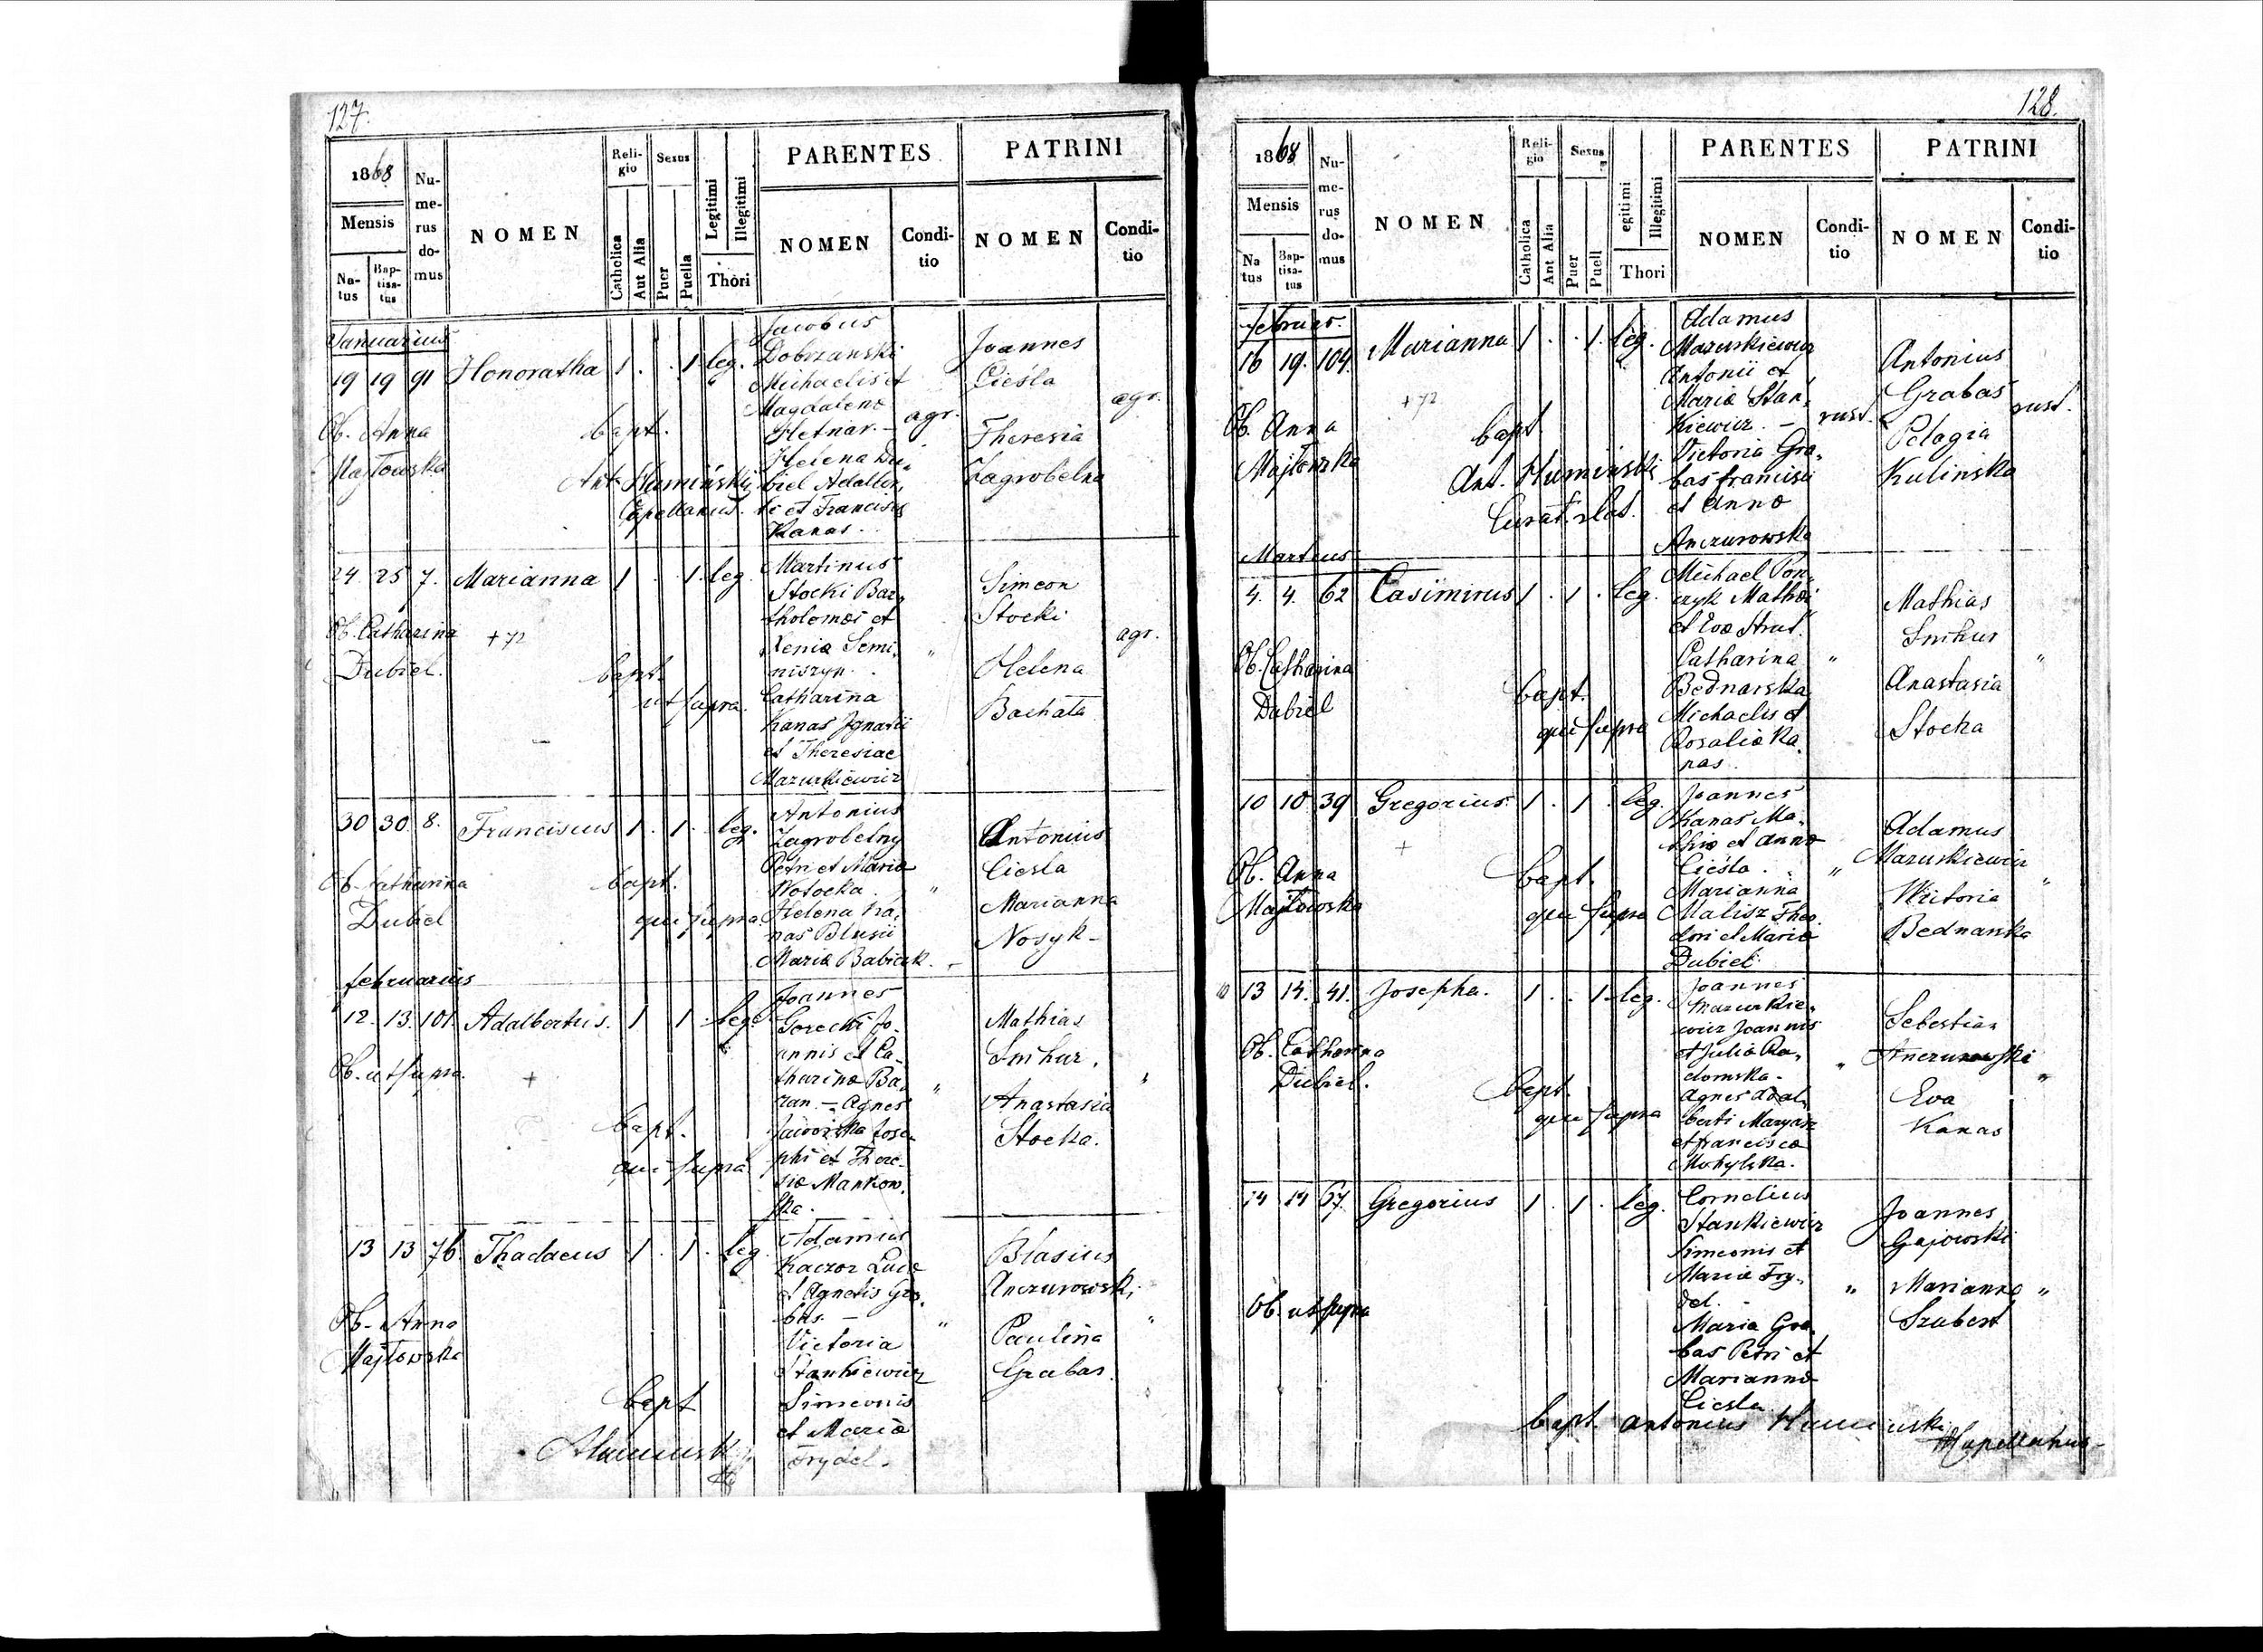 127.
1868
Mensis
Na-
tus
Bap-
tisa-
tus
Nu-
me-
rus
do-
mus
NOMEN
Reli-
gio
Catholica
Aut Alia
Sexus
Puer
Puella
Legitimi
Illegitimi
Thori
PARENTES
NOMEN
Condi-
tio
PATRINI
NOMEN
Condi-
tio
Januarius
19 19 91 Honoratha 1 . . 1 leg.
Jacobus
Dobrzanski
Michaelis et
Magdalenæ
Hetnar. — agr.
Helena Du,
biel Adalber,
ti et Francisca
Kanas.
Joannes
Cieśla
agr.
Theresia
Zagrobelna
Ob. Anna
Majtowska
bapt.
Ant. Humiński
Capellanus.
24. 25 7. Marianna 1 . . 1. leg.
Martinus
Stocki Bar,
tholomæi et
Xenia Semi,
niszyn. "
Catharina
Kanas Ignatii
et Theresiae
Mazurkiewicz
Simeon
Stocki
agr.
Helena
Bachata
Ob. Catharina
Dubiel.
+72
bapt.
ut supra.
30 30. 8. Franciscus 1 . 1. . leg.
Antonius
Zagrobelny
Petri et Maria
Wotocka. "
Helena Ka,
nas Blasii
Maria Babicak.
Antonius
Ciesla
Marianna
Nosyk -
Ob. Catharina
Dubiel
bapt.
qui supra.
februarius
12. 13. 101. Adalbertus. 1 1 . leg.
Joannes
Gorecki Jo-
annis et Ca-
tharinæ Ba,
ran. — Agnes "
Jaworska Jose-
phi et There-
siæ Mankow,
ska.
Mathias
Smhur.
"
Anastasia
Stocka.
Ob. ut supra.
+
bapt.
qui supra
13 13 76. Thadaeus 1 . 1 . leg.
Adamus
Kaczor Lucæ
et Agnetis Gra,
bas. — "
Victoria
Stankiewicz
Simeonis
et Mariæ
Frydel.
Blasius
Anczurowski
"
Paulina
Grabas
Ob. Anna
Majtowska
bapt
AHuminski
128.
1868
Mensis
Na
tus
Bap-
tisa-
tus
Nu-
me-
rus
do-
mus
NOMEN
Reli-
gio
Catholica
Ant Alia
Sexus
Puer
Puell
egitimi
Illegitimi
Thori
PARENTES
NOMEN
Condi-
tio
PATRINI
NOMEN
Condi-
tio
februar.
16 19. 104. Marianna 1 . . 1. leg.
Adamus
Mazurkiewicz
Antonii et
Mariæ Stan,
kiewicz. — rust.
Victoria Gra,
bas francisci
et Annæ
Anczurowska
Antonius
Grabas
rust.
Pelagia
Kulinska
Ob. Anna
Majtowska
+72
bapt
Ant. Humiński
Curat. Lat.
Martius
4. 4. 62 Casimirus 1 . 1 . leg.
Michael Pon,
czyk Mathæi
et Evæ Strut.
Catharina "
Bednarska
Michaelis et
Rosaliæ Ka,
nas.
Mathias
Smhur
"
Anastasia
Stocka
Ob. Catharina
Dubiel
bapt.
qui supra
10 10 39 Gregorius. 1 . 1 . leg.
Joannes
Kanas Ma,
thiæ et Annæ
Cieśla. "
Marianna
Malisz Theo
dori et Mariæ
Dubiel.
Adamus
Mazurkiewicz
"
Wictoria
Bednarska
Ob. Anna
Majtowska
+
bapt.
qui supra
13 14. 41. Josepha. 1 . . 1. leg.
Joannes
Mazurkie,
wicz Joannis
et Julia Ra,
domska. "
Agnes Adal,
berti Maryasz
et francisca
Mohylska.
Sebestian
Anczurowski
"
Eva
Kanas
Ob. Catharina
Dubiel.
bapt.
qui supra
14 14 67. Gregorius 1 . 1 . leg.
Cornelius
Stankiewicz
Simeonis et
Mariæ Fry,
del. "
Maria Gra,
bas Petri et
Mariannæ
Ciesla.
Joannes
Gajowski
Marianna "
Szubert
Ob. ut supra
bapt. Antonius Huminski
Capellanus